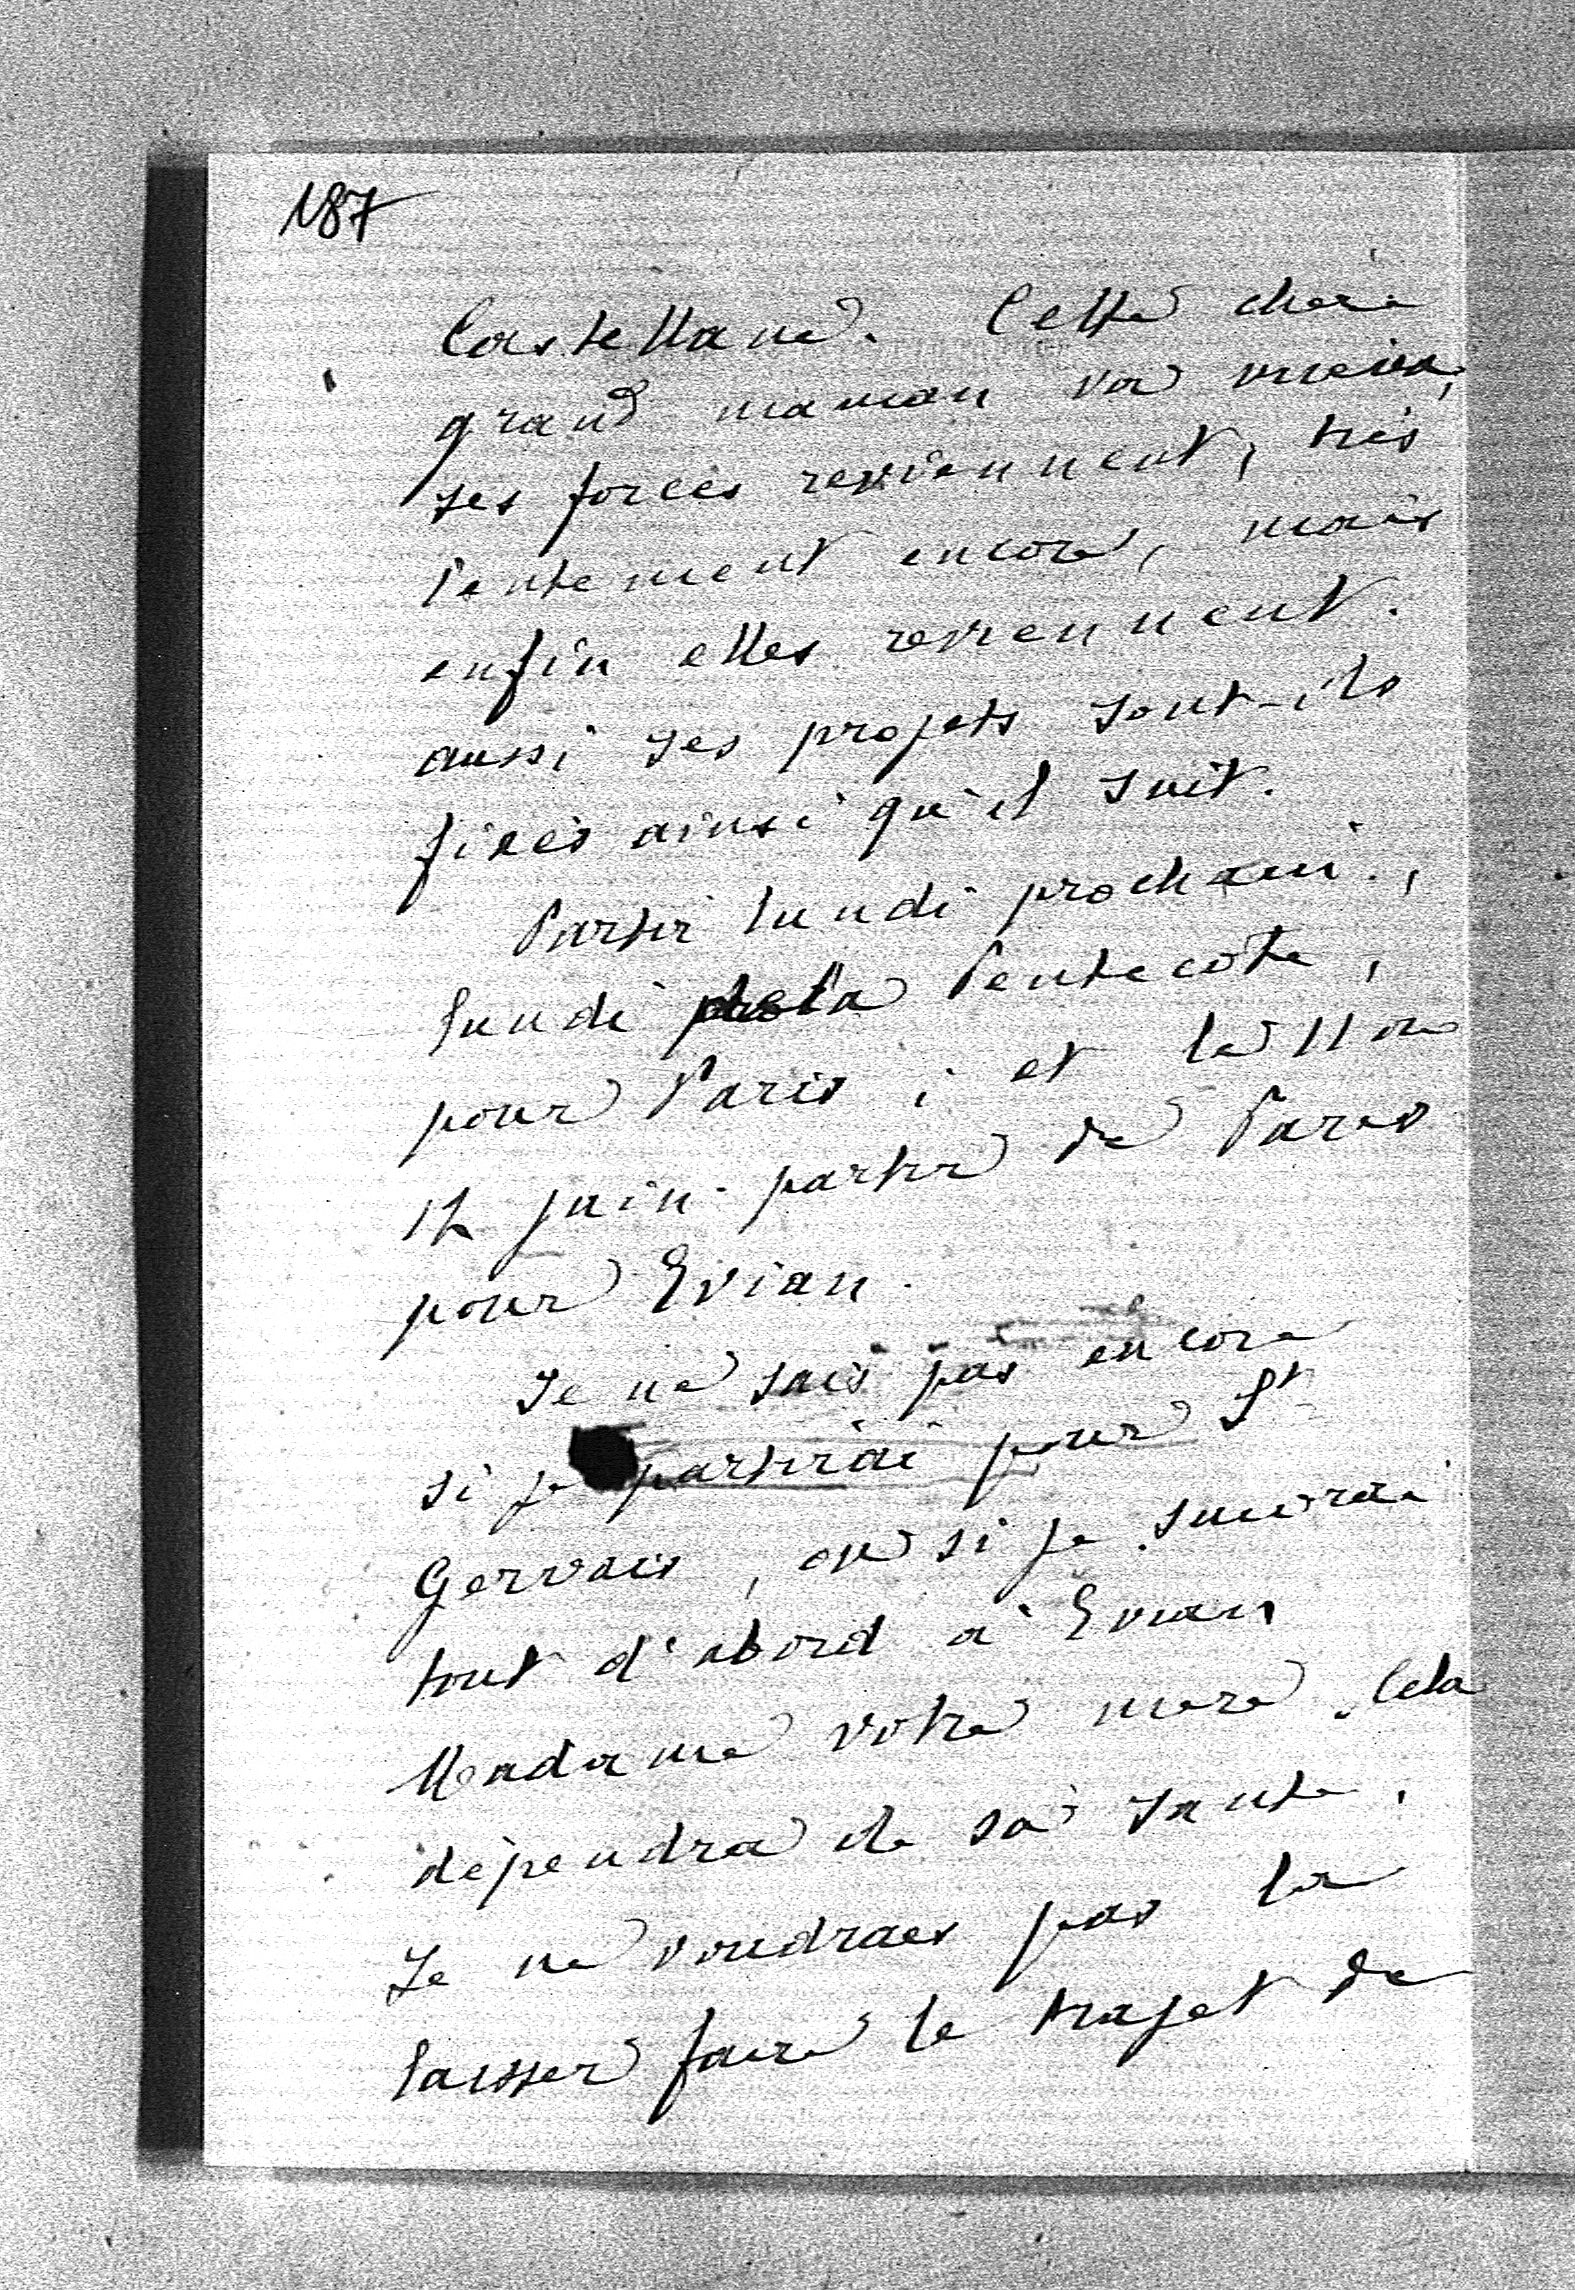 187
Castellane. Cette chère
grand maman va mieux,
ses forces reviennent, très
lentement encore, mais
enfin elles reviennent.
aussi ses projets sont-ils
fixés ainsi qu'il suit.
Partir lundi prochain,
lundi de la Pentecôte,
pour Paris ; et le 11 ou
12 juin partir de Paris
pour Evian.
Je ne sais pas encore
si je partirai pour St
Gervais, ou si je suivrai
tout d'abord à Evian
Madame votre mère. Cela
dépendra de sa santé.
Je ne voudrais pas la
laisser faire le trajet de